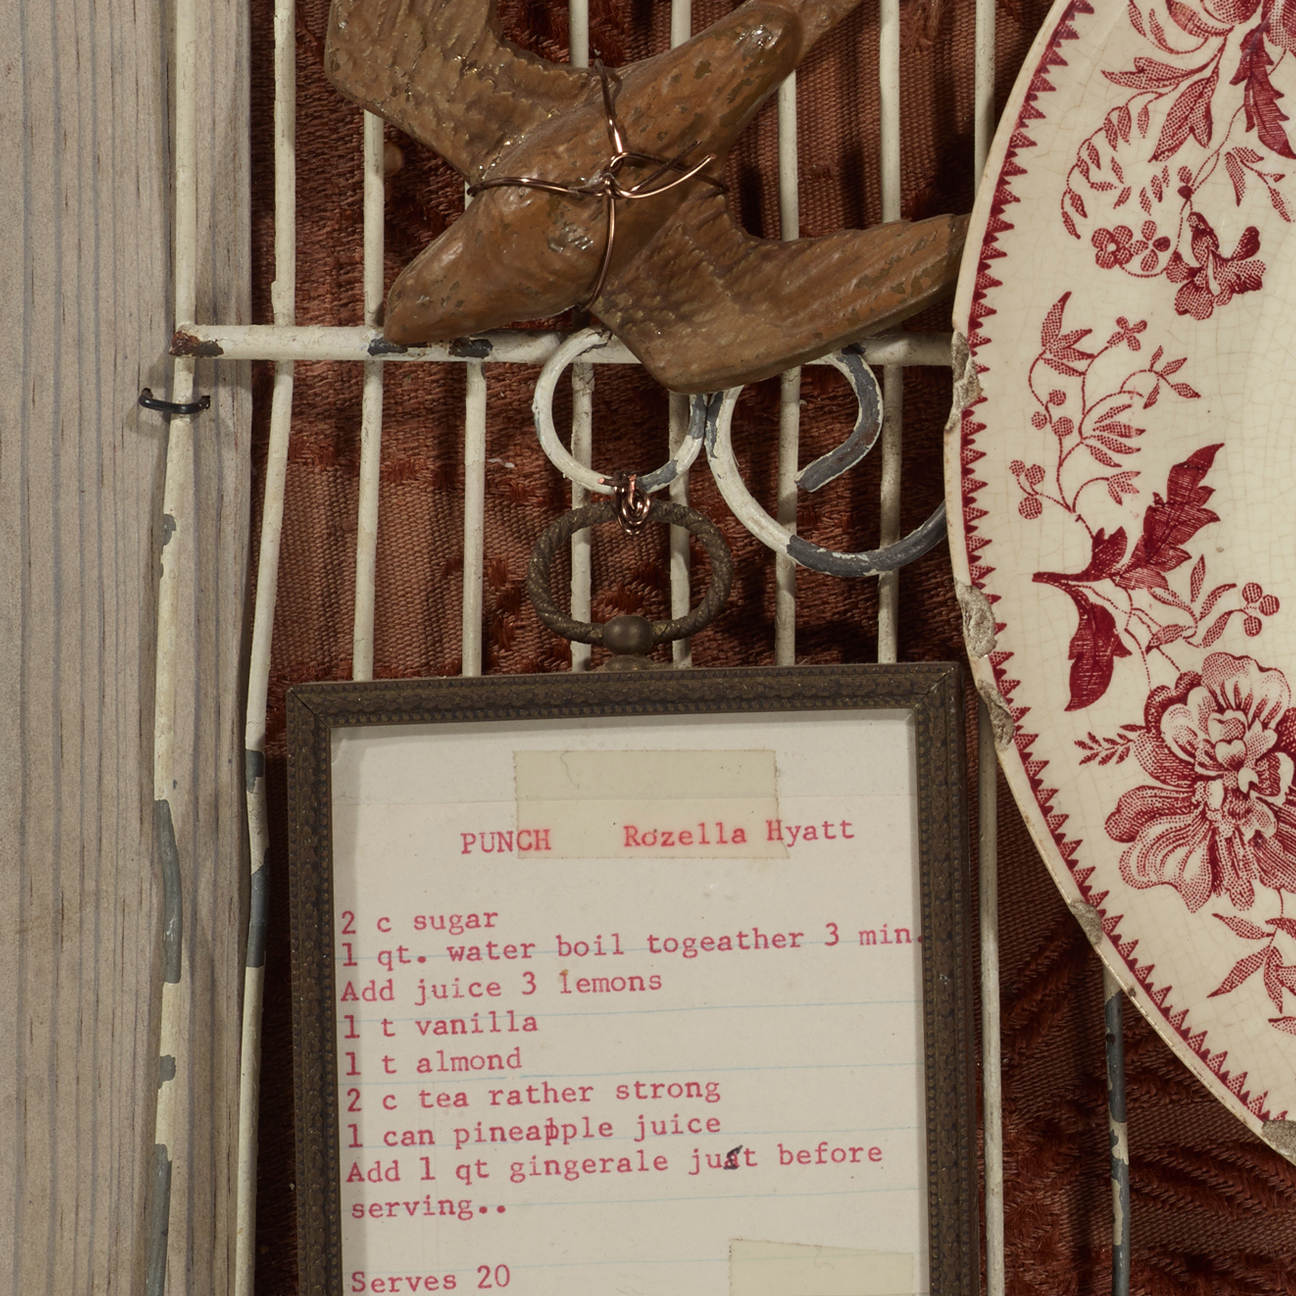 PUNCH    Rozella Hyatt
2 c sugar
1 qt. water boil togeather 3 min.
Add juice 3 lemons
1 t vanilla
1 t almond
2 c tea rather strong
1 can pineapple juice
Add 1 qt gingerale just before
serving..
Serves 20